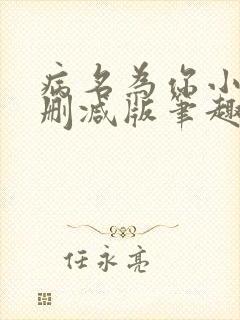 病名为你小
删减版笔趣
任永亮